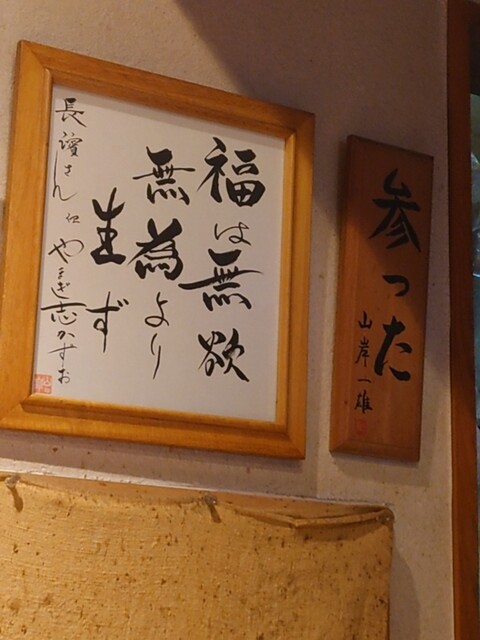 参った
山岸一雄
福は無欲
無為より
生ず
長濱さん江
やまぎ志かずお